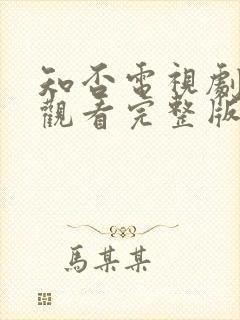 知否電視劇
觀看完整版
馬某某